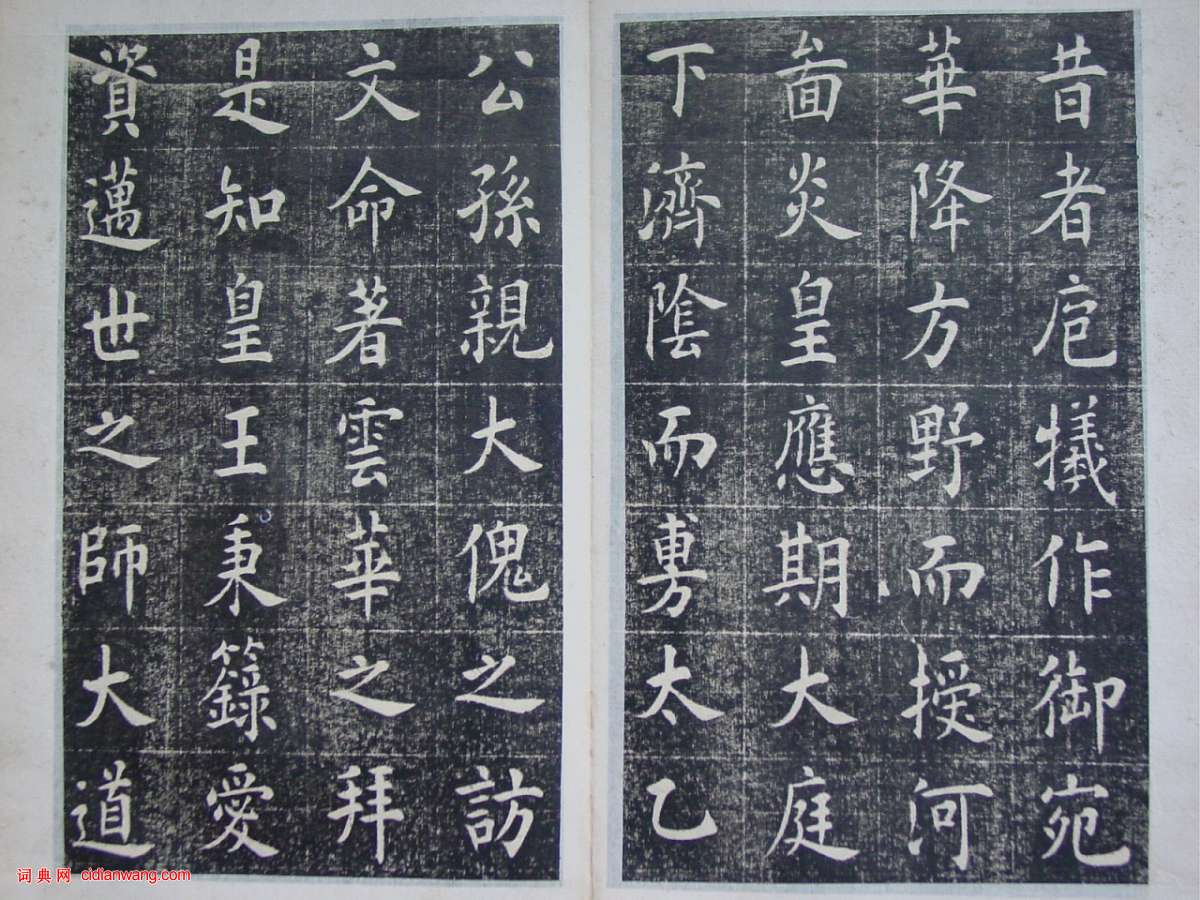 昔者庖犧作御宛
華降方野而授河
啚炎皇應期大庭
下濟陰而旉太乙
公孫親大傀之訪
文命著雲華之拜
是知皇王秉籙愛
資邁世之師大道
词典网 cidianwang.com